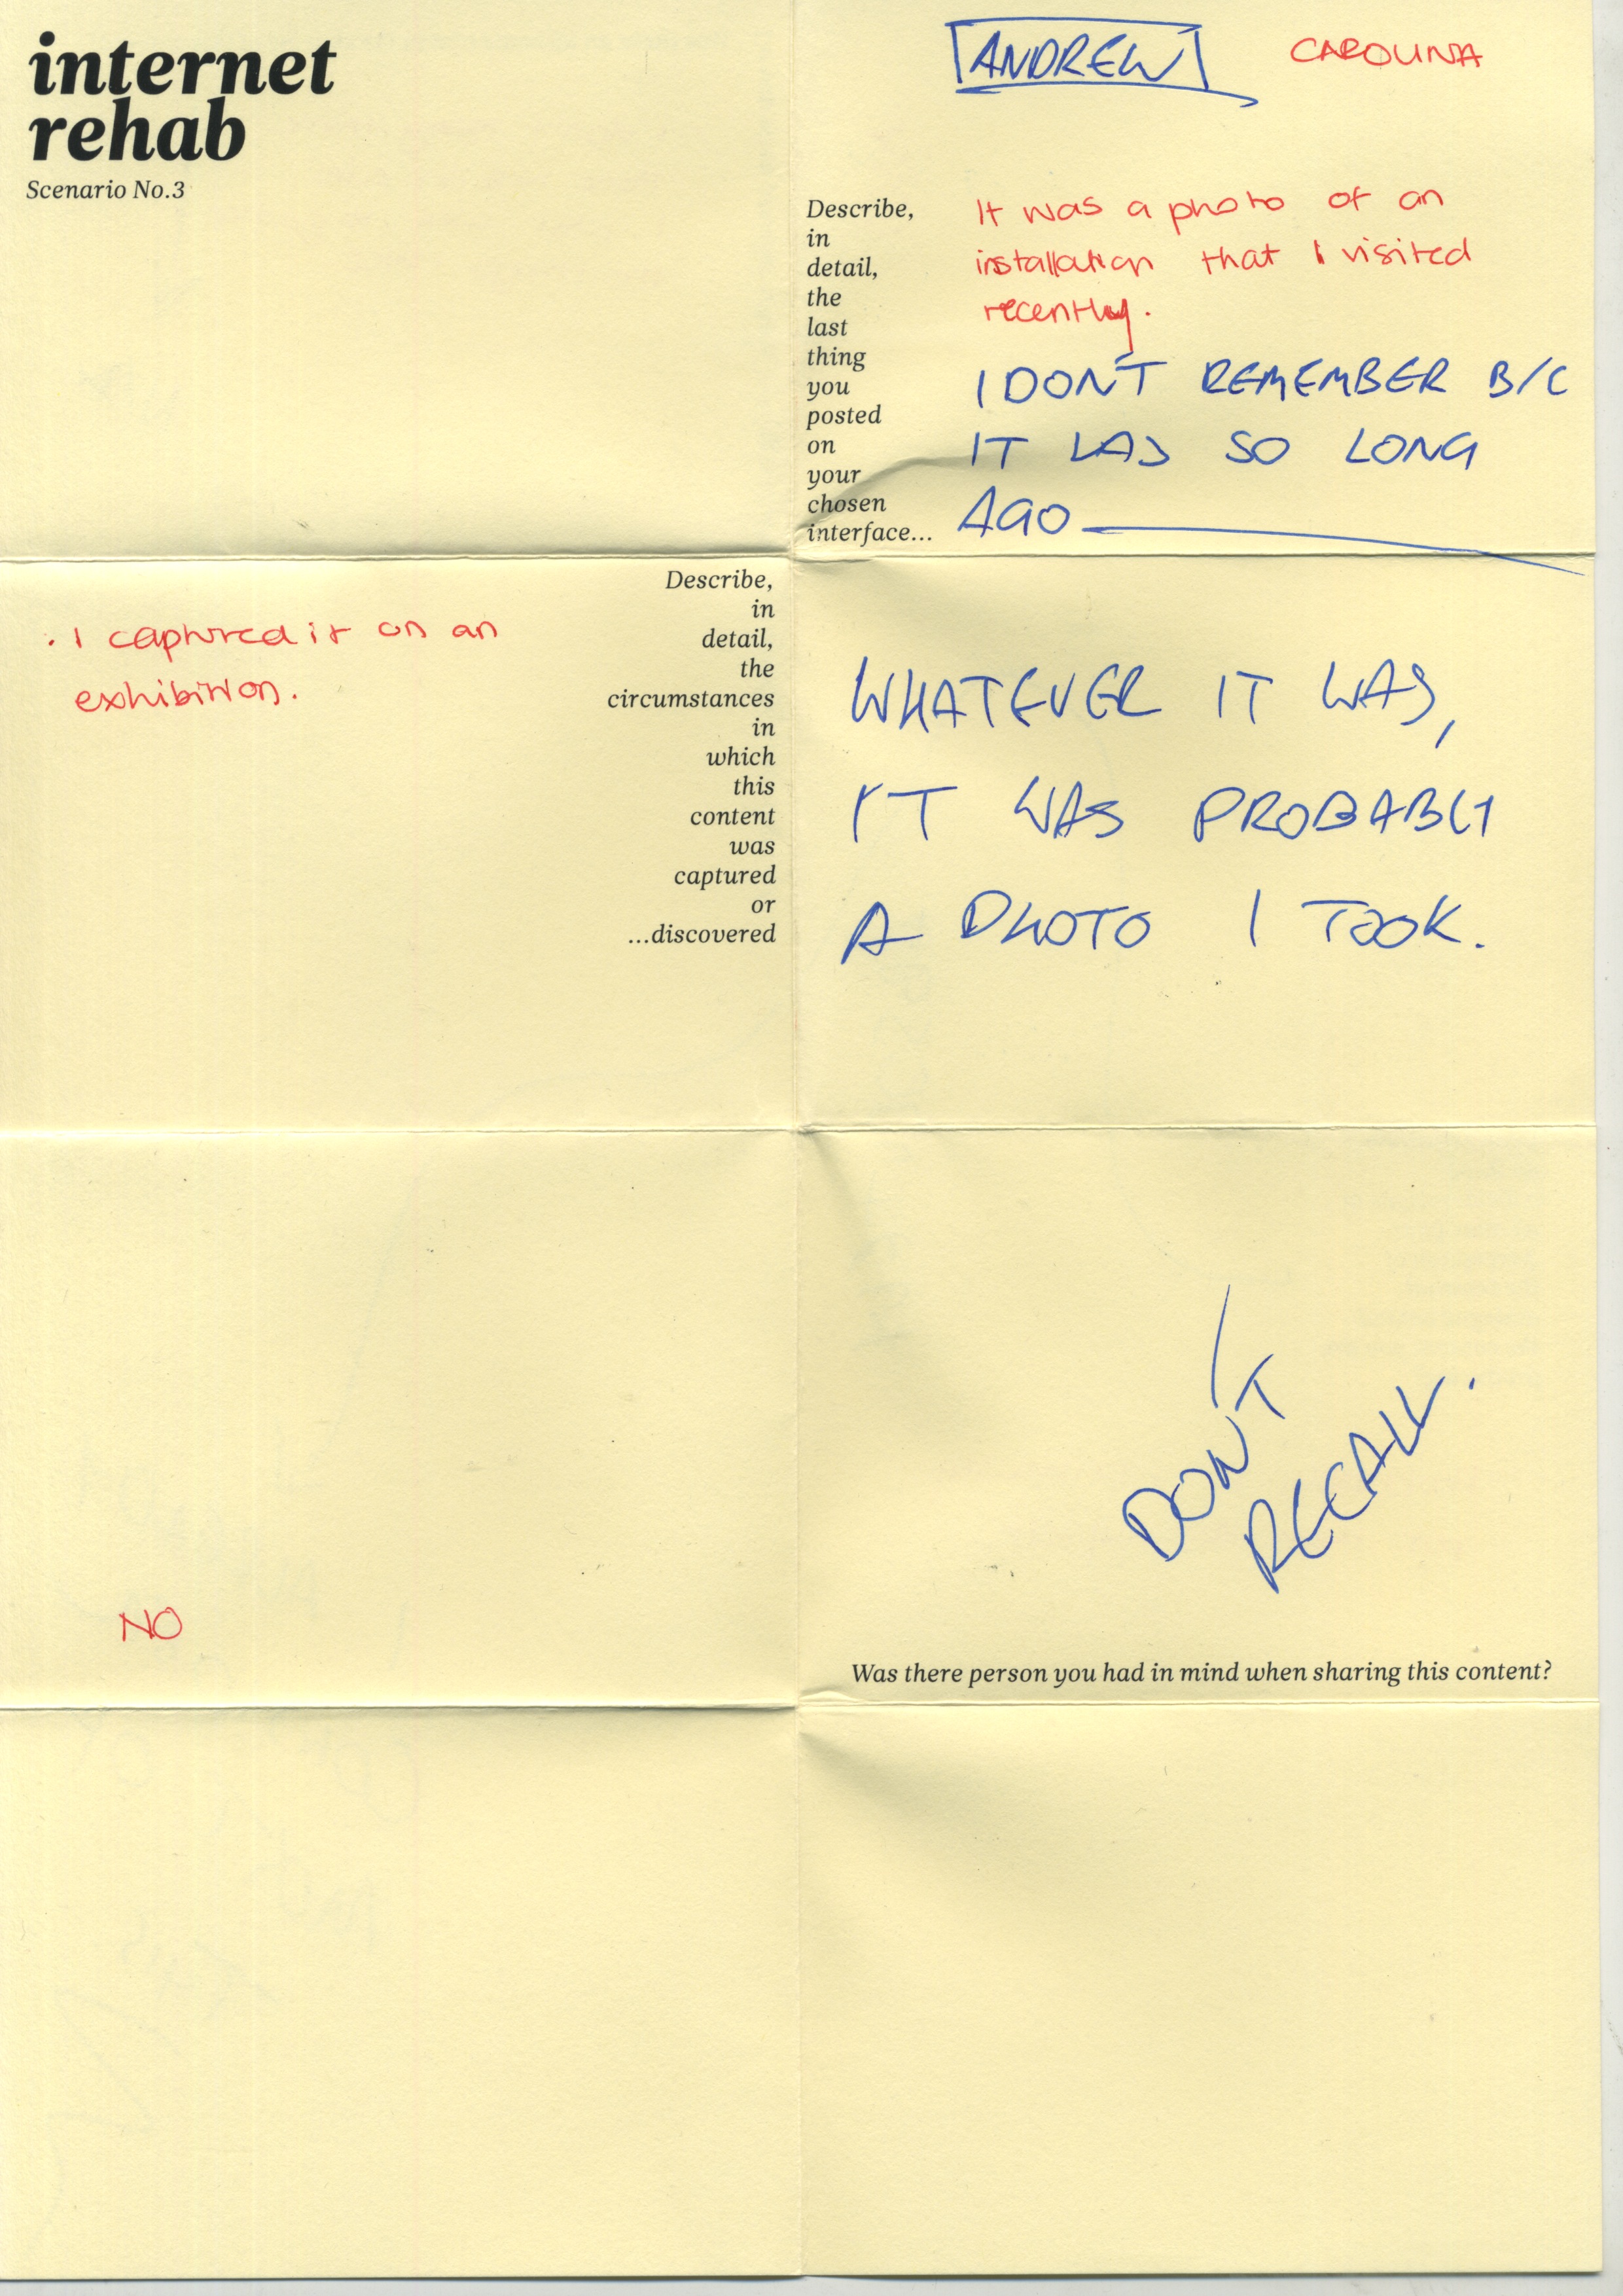 internet
rehab
Scenario No.3
ANDREW
CAROLINA
Describe,
in
detail,
the
last
thing
you
posted
on
your
chosen
interface...
It was a photo of an
installation that I visited
recently.
I DON'T REMEMBER B/C
IT WAS SO LONG
AGO
. I captured it on an
exhibition.
Describe,
in
detail,
the
circumstances
in
which
this
content
was
captured
or
...discovered
WHATEVER IT WAS,
IT WAS PROBABLY
A PHOTO I TOOK.
I
DON'T
RECALL.
NO
Was there person you had in mind when sharing this content?